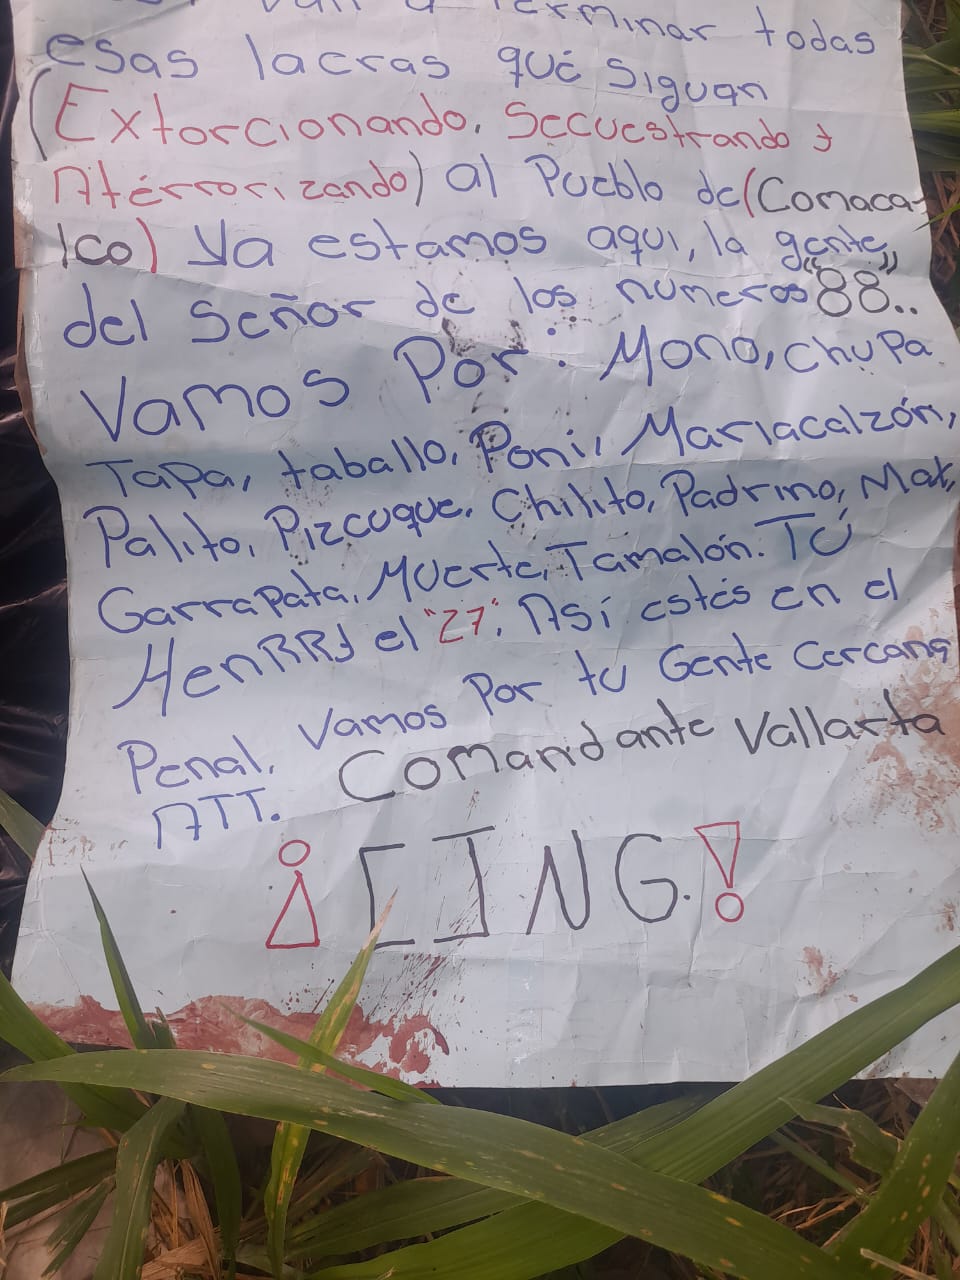 van a terminar todas
esas lacras qué siguan
(Extorcionando, Seccuestrando y
Atérrorizando) al Pueblo de (Comaca-
lco) Ya estamos aqui, la gente
del Señor de los numeros "88"..
Vamos Por: Mono, Chupa
Tapa, taballo, Poni, Mariacalzón,
Palito, Pizcuque, Chilito, Padrino, Mak,
Garrapata, Muerte, Tamalón. TÚ
HenRRy el "27". Así estés en el
Penal. Vamos Por tu Gente Cercana
ATT. Comandante Vallarta
¡CJNG.!